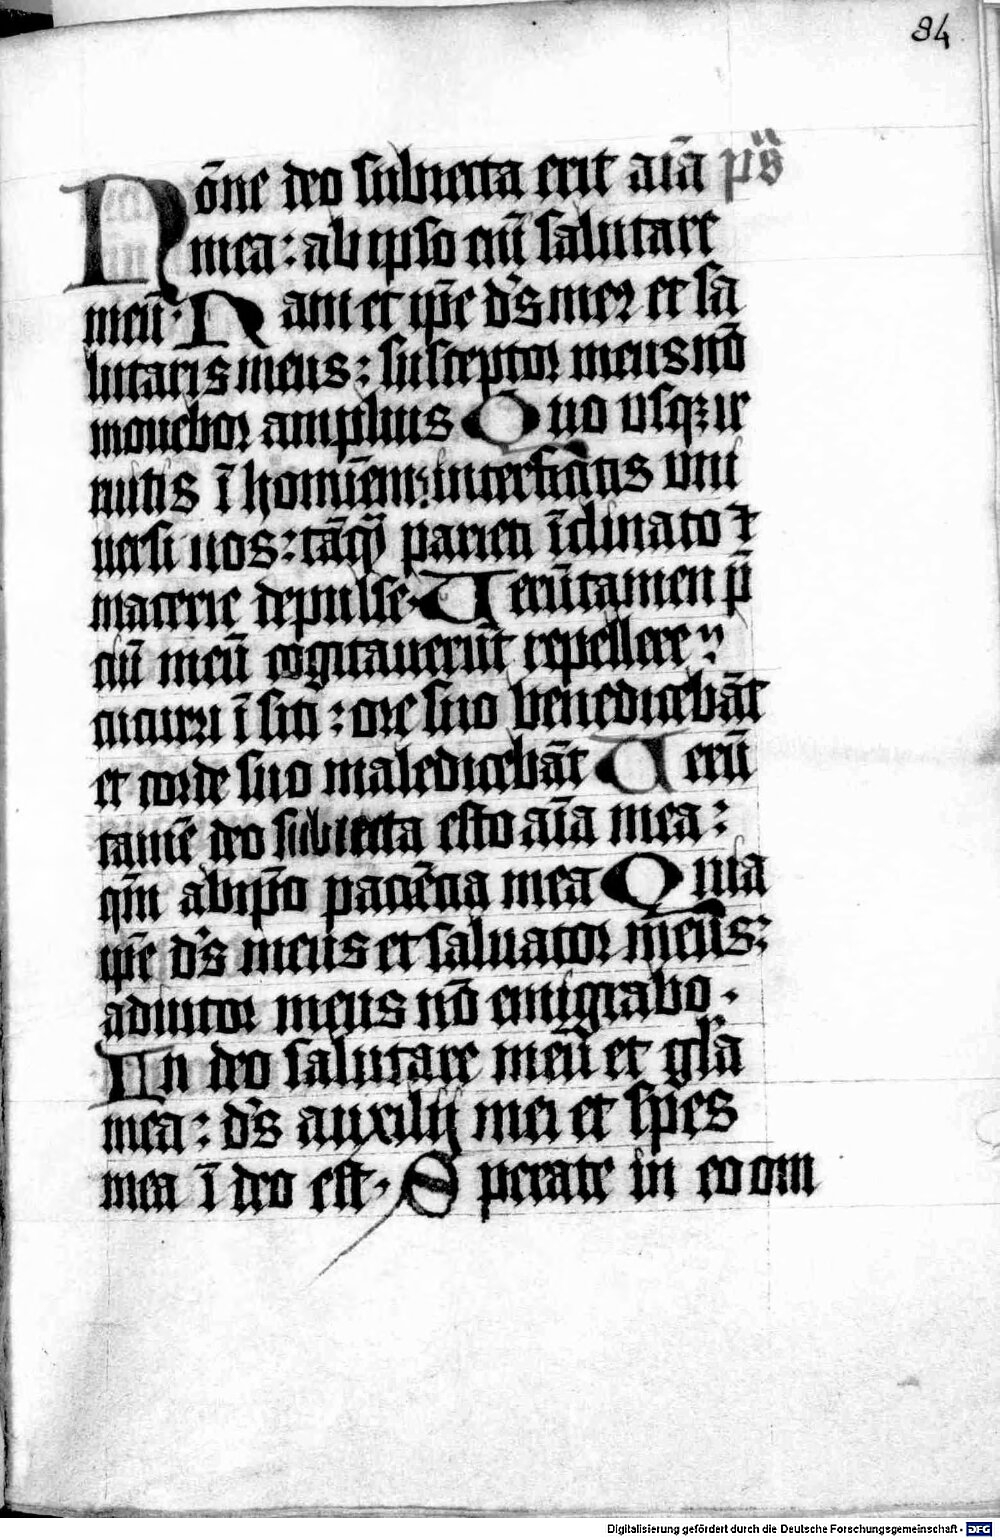 84
Nōne deo subiecta erit aīa ps̄
mea: ab ipso eni̅ salutare
meū. Nam et ip̄e d̄s meꝰ et sa
lutaris meus: susceptor meus nō
mouebor amplius Quo usqꝫ ir
ruitis ī homīem: interficītis uni
uersi uos: tāqͣ parieti īclinato ⁊
macerie depulse. Uerūtamen p̄
ciū meū cogitauerūt repellere:
cucurri ī siti: ore suo benedicebāt
et corde suo maledicebāt Uerū
tamē deo subiecta esto aīa mea:
qm̄ ab ip̄o paciētia mea Quia
ip̄e d̄s meus et saluator meus:
adiutor meus nō emigrabo.
In deo salutare meū et gl̄a
mea: d̄s auxilij mei et spes
mea ī deo est. Sperate in eo om
Digitalisierung gefördert durch die Deutsche Forschungsgemeinschaft - DFG